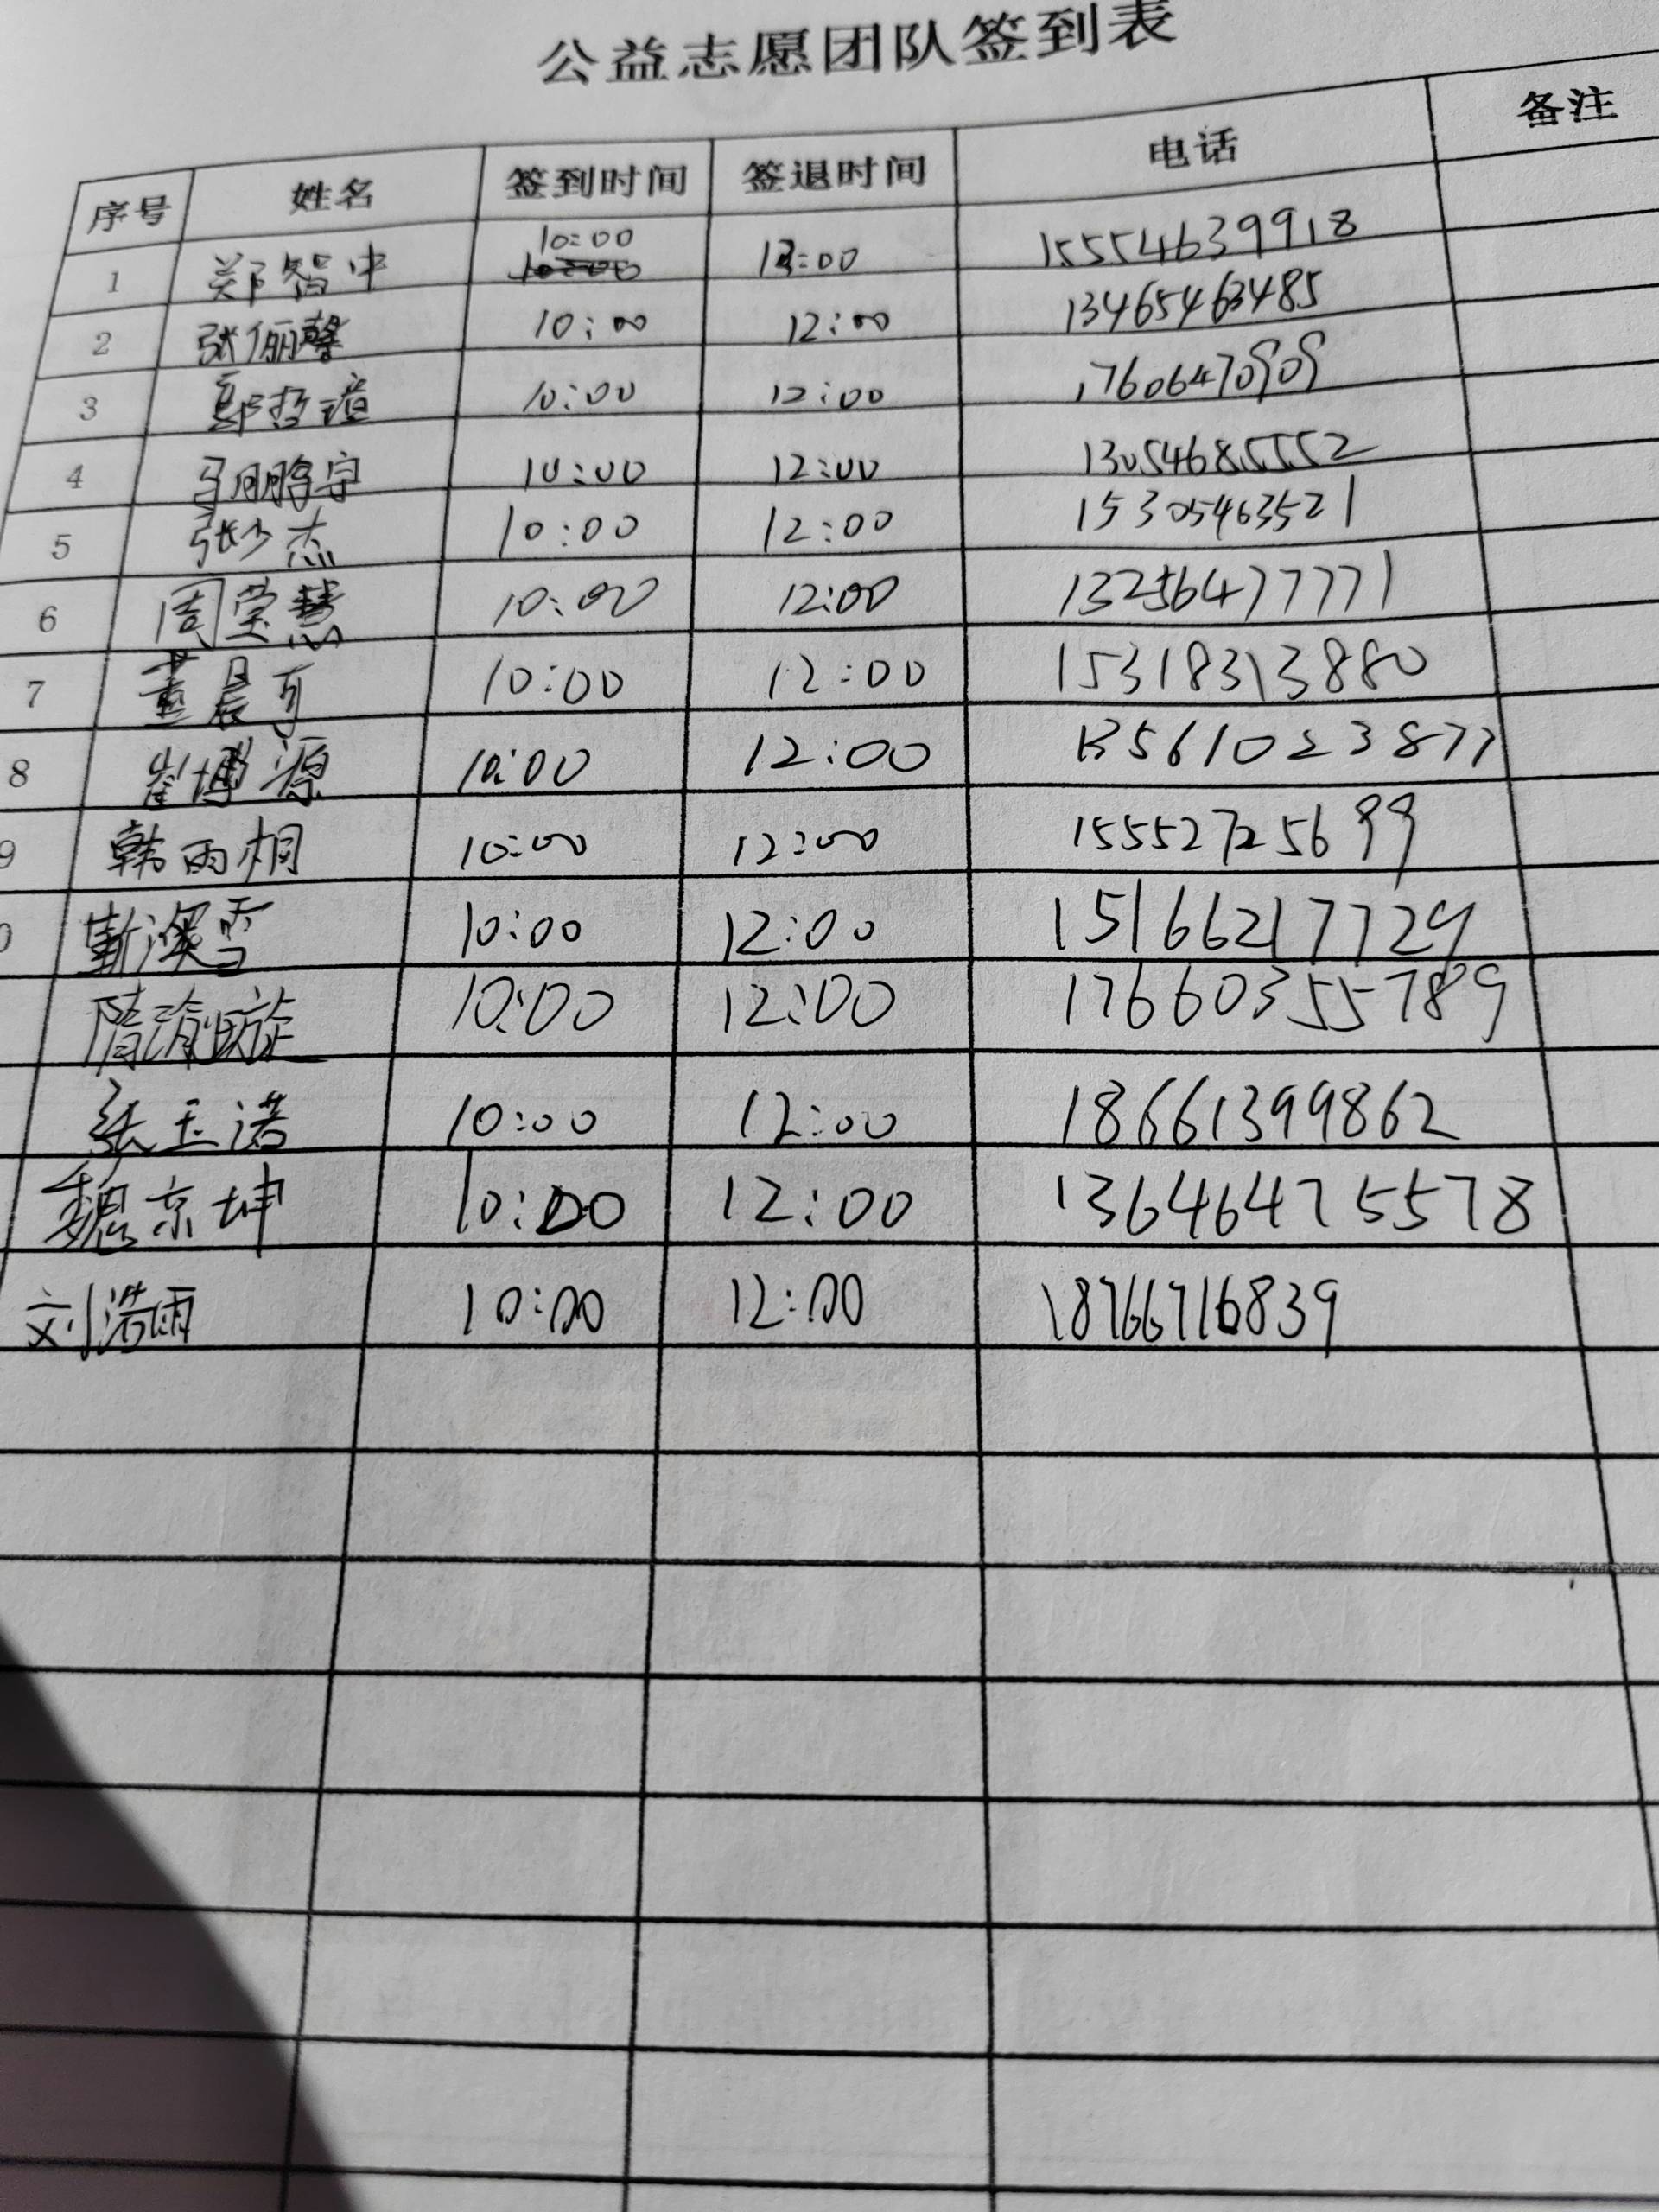 公益志愿团队签到表
序号 姓名 签到时间 签退时间 电话 备注
1 郑智中 10:00 12:00 15554639918
2 张俪馨 10:00 12:00 13465463485
3 郑哲谊 10:00 12:00 17606470909
4 马鹏宇 10:00 12:00 13054685552
5 张少杰 10:00 12:00 15305463521
6 周莹慧 10:00 12:00 13256477771
7 董晨可 10:00 12:00 15318313880
8 崔博源 10:00 12:00 13561023877
9 韩雨桐 10:00 12:00 15552725699
靳澳雪 10:00 12:00 15166217729
隋渝璇 10:00 12:00 17660355789
张玉诺 10:00 12:00 18661399862
魏京坤 10:00 12:00 13646475578
刘浩雨 10:00 12:00 18766716839